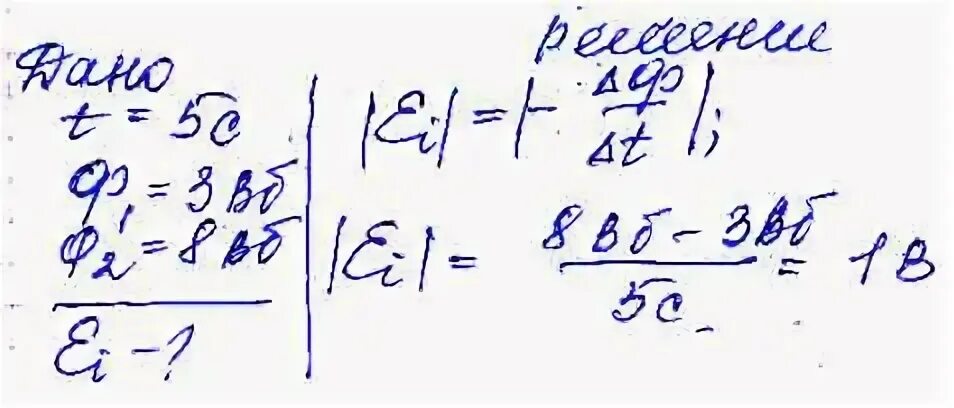 Дано
t = 5с
Ф₁ = 3 Вб
Ф₂ = 8 Вб
Ɛi - ?
решение
|Ɛi| = |- ΔФ/Δt|;
|Ɛi| = (8 Вб - 3 Вб)/5с = 1 В